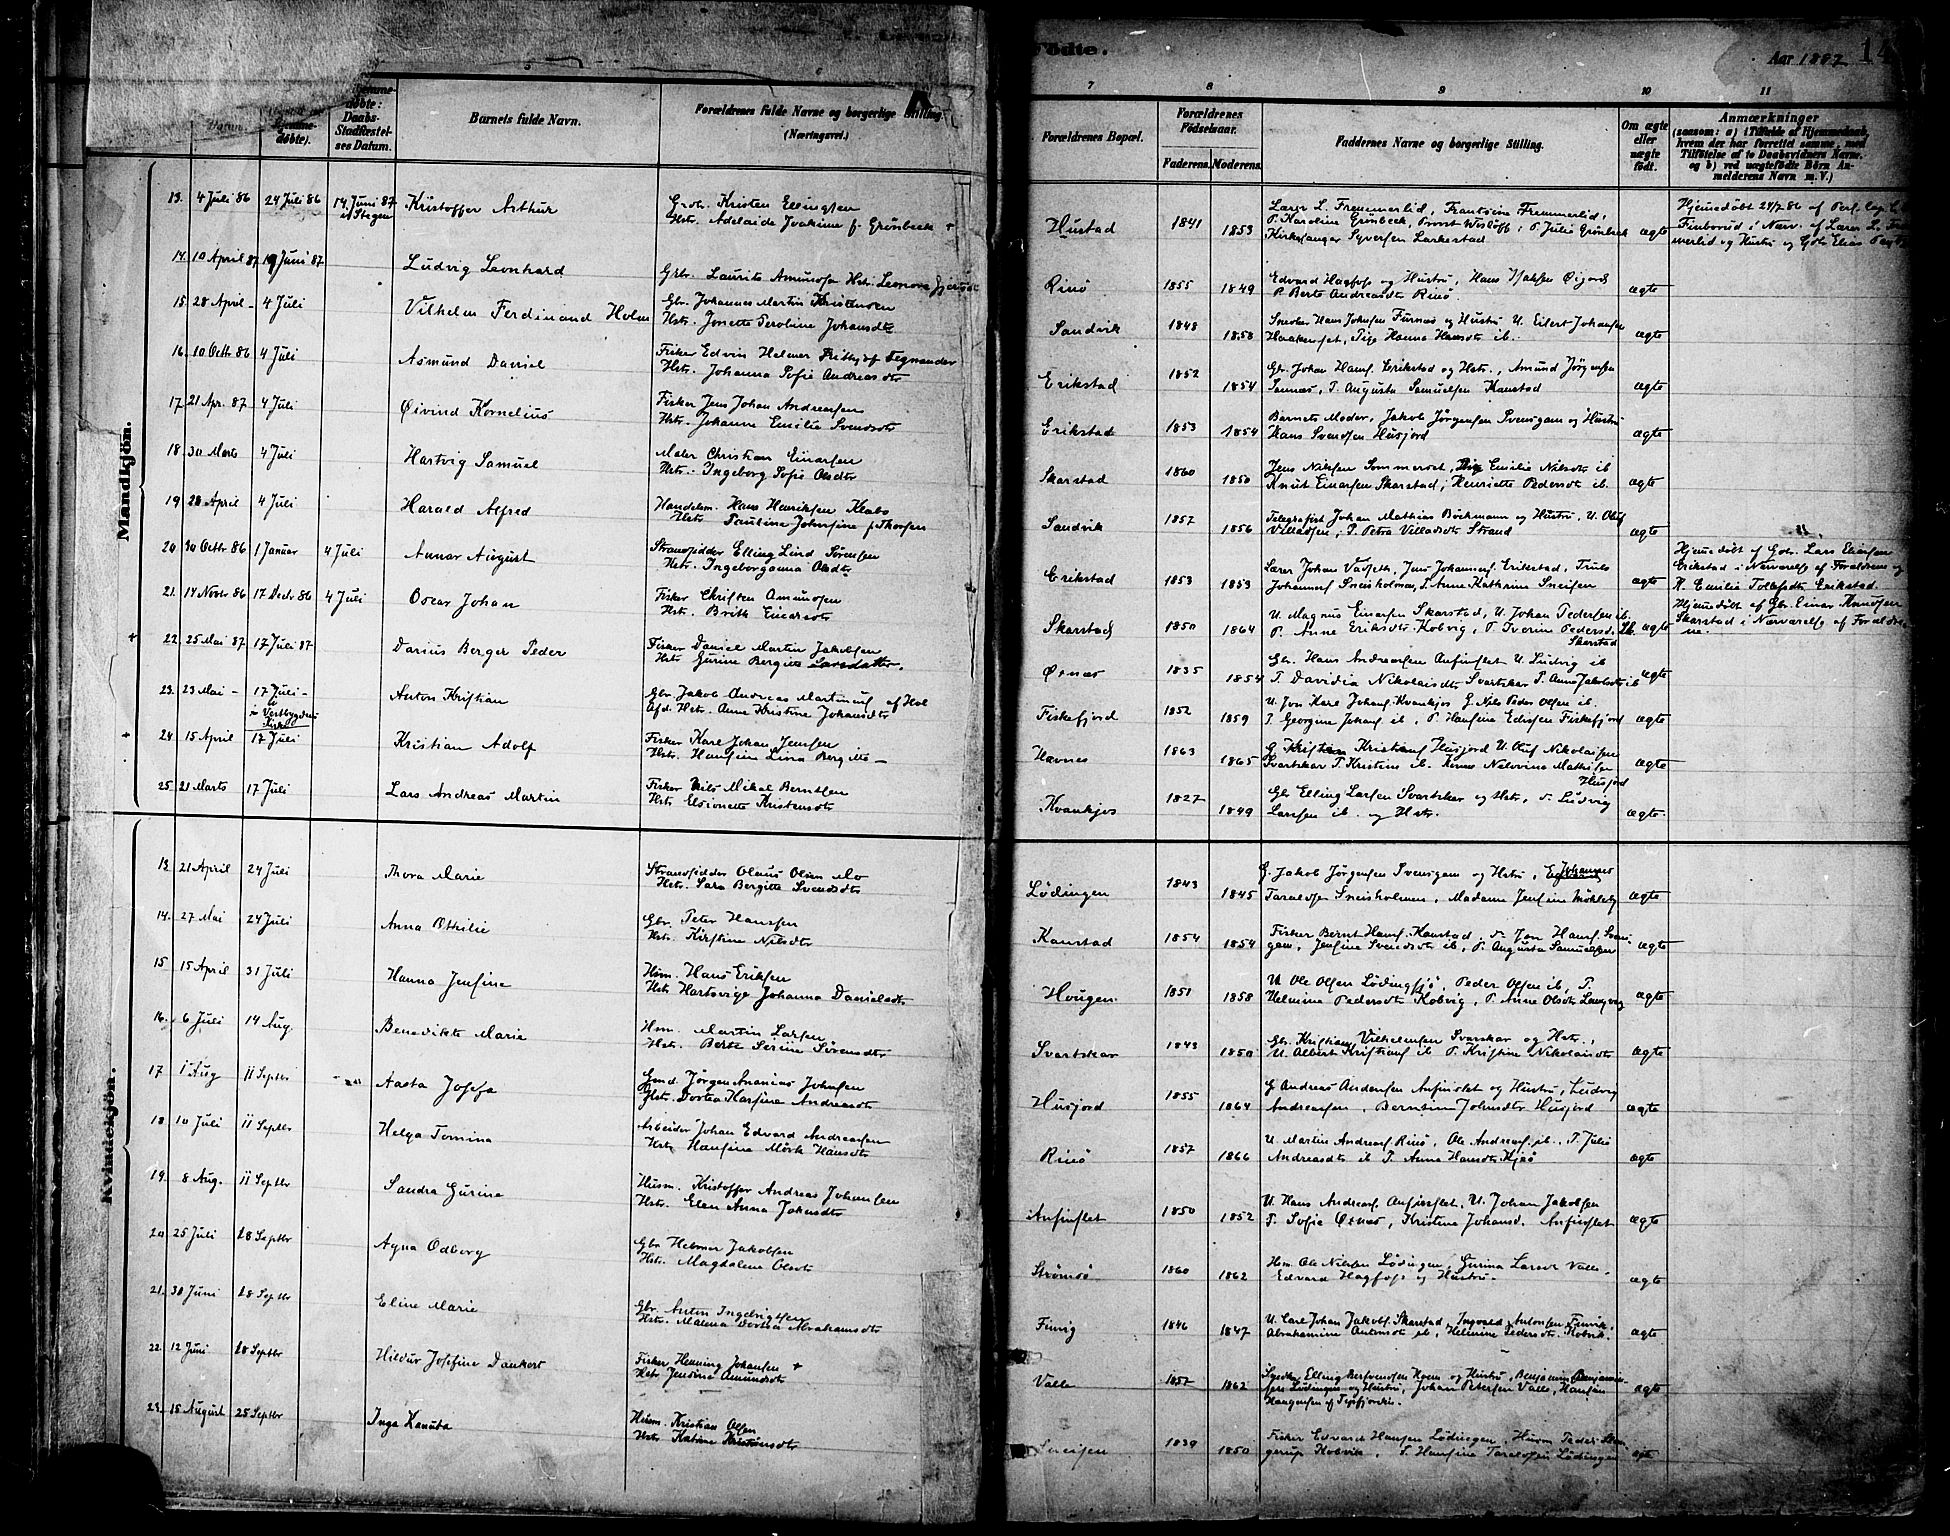 Födte.
Aar 1887
14
5
6
7
8
9
10
11
Datum
Hjemmedøbte).
Hjemmedøbte:
Daabs-
Stadfæstel-
ses Datum.
Barnets fulde Navn.
Forældrenes fulde Navne og borgerlige Stilling.
(Næringsvei.)
Forældrenes Bopæl.
Forældrenes
Födselsaar.
Faderens. Moderens.
Faddernes Navne og borgerlige Stilling.
Om ægte
eller
uægte
födt.
Anmærkninger
(saasom: a) i Tilfælde af Hjemmedaab,
hvem der har forrettet samme, med
Tilföielse af to Daabsvidners Navne.
og b) ved uægtefödte Börn An-
melderens Navn m. V.)
Mandkjön.
13. 4 Juli 86 24 Juli 86 14. Juni 87 Kristoffer Arthur Grdr. Kristen Ellingsen
Hstr. Adelaide Joakime f. Grønbeck
Hustad 1841 1853 Lærer L. Fremmerlid, Frantsine Fremmerlid,
P. Karoline Grønbeck, Provst Wisløff, P. Julie Grønbeck
Kirkesanger Syversen Lerkestad ægte
Hjemedøbt 24/7 86 af
14. 10 April 87 19 Juni 87 Ludvig Leonhard Grbr. Laurits Amundsen Hstr. Leonora
Rinø 1855 1849 Edvard Hagfors og Hustru, Hans Isaksen Øigord
P. Berte Andreasdt Rinø. ægte
15. 28 April - 4 Juli Vilhelm Ferdinand Holm Gbr. Johannes Martin Kristensen
Hstr. Jonette Serobine Johansdtr
Sandvik 1848 1850 Snedker Hans Johnsen Furnes og Hustru U. Eilert Johansen
Haakenset, Pige Hanna Hansdt ib. ægte
16. 10 Octbr 86 4 Juli Asmund Daniel Fisker Edvin Helmer Frithjof Tegnander
Hstr. Johanna Sofie Andreasdtr
Erikstad 1852 1854 Gbr. Johan Hansf. Erikstad og Hstr., Amund Jörgensen
Sennes, P. Augusta Samuelsen Kanstad ægte
17. 21 Apr. 87 4 Juli Øivind Kornelius Fisker Jens Johan Andreassen
Hstr. Johanne Emilie Svendsdtr
Erikstad 1853 1854 Barnets Moder, Jakob Jørgensen Svensgam og Hustru
Hans Svendsen Husjord ægte
18 30 Marts 4 Juli Hartvig Samuel Maler Christian Einarsen
Hstr. Ingeborg Sofie Olsdtr
Skarstad 1860 1850 Jens Nilsen Sommerset, Pige Emilie Nilsdt ib
Knut Einarsen Skarstad, Henriette Pedersdt ib. ægte
19 28 April 4 Juli Harald Alfred Handelsm. Hans Henriksen Klabo
Hstr. Pauline Johnsine f. Thorsen
Sandvik 1857 1856 Telegrafist Johan Mathias Böckmann og Hustru, U. Oluf
Villadsen, P. Petra Villadsdt Strand ægte
20 30 Octbr 86 1 Januar 4 Juli Annar August Strandsidder Elling Lind Sørensen
Hstr. Ingeborganna Olsdtr
Erikstad 1853 1853 Lærer Johan Vadseth, Jens Johannes. Erikstad, Truls
Johannes. Sneisholmen, P. Anne Kathrine Sneisen ægte
Hjemedøbt af Gbr. Lars Eliassen
Erikstad i Nærværelse af Forældrene og
K. Emilie Tollefsdt Erikstad
21. 14 Novbr 86 17 Decbr 86 4 Juli Oscar Johan Fisker Christen Amundsen
Hstr. Brith Einarsdt
Skarstad 1850 1864 U. Magnus Einarsen Skarstad, U. Johan Pedersen ib.
P. Anne Eriksdt. Kobvig, P. Iverine Pedersd. ib.
Skarstad ægte
Hjemedøbt af Gbr. Einar Knudsen
Skarstad i Nærværelse af Forældre-
ne.
22. 25 Mai 87 17 Juli 87 Darius Berger Peder Fisker Daniel Martin Jakobsen
Hstr Gurine Bergitte Larsdatter.
Ørnes 1835 1854 Gbr. Hans Andreassen Anfinslet U. Ludvig ib
P. Davidia Nikolaisdt Svartskar P. Anne Jakobsdt ib ægte
23. 23 Mai - 17 Juli -
i Vestbygdens
Kirke
Anton Kristian Gbr. Jakob Andreas Martinus. af Hol
Afd. Hst. Anne Kristine Johansdt
Fiskefjord 1852 1859 U. Jon Karl Johans. Kvankjos G. Nils Peder Olsen ib.
P. Georgine Johans. ib, P. Hansine Edisen Fiskefjord ægte
24. 15 April 17 Juli Kristian Adolf Fisker Karl Johan Jensen
Hstr. Hansine Lina Bergitte -
Havnes 1863 1865 G. Kristian Kristians. Husjord U. Oluf Nikolaisen
Svartskar P. Kristine ib. Konne Nelovine Mathisen
Husjord ægte
25. 21 Marts 17 Juli Lars Andreas Martin Fisker Nils Mikal Berntsen
Hstr. Elsionette Kristensdt
Kvankjos 1827 1849 Gbr Elling Larsen Svartskar og Hstr., U. Ludvig
Larsen ib. og Hstr. ægte.
Kvindekjön.
13. 21 April 24 Juli Thora Marie Strandsidder Olaus Olsen Mo
Hstr. Sara Bergitte Svendsdt
Lödingen 1843 1845 G. Jakob Jørgensen Svensgam og Hstr., Johannes
Taraldsen Sneisholmen, Madame Jensine Møkleby ægte
14. 27 Mai 24 Juli Anna Othilie Gbr. Peter Hansen
Hstr. Kirstine Nilsdt
Kanstad 1854 1854 Fisker Bernt Hans. Kanstad, U. Jon Hans. Svens-
gam, Jensine Svendsdt ib, P. Augusta Samuelsen ægte
15 15 April 31 Juli Hanna Jensine Hsm. Hans Eriksen
Hstr Hartvige Johanna Danielsdt
Hougen 1851 1858 U. Ole Olsen Lödingsjø, Peder Olsen ib, P.
Helmine Pedersdt Kobvig, P. Anne Olsdt Langvag ægte
16. 6 Juli 14 Aug. Benedikte Marie Hsm. Martin Larsen
Hstr. Berte Serine Sörensdt
Svartskar 1843 1850 Gbr. Kristian Vilhelmsen Svarskar og Hstr.,
U. Albert Kristians. ib P. Kristine Nikolaisdt ægte
17 1 Aug 11 Septbr Aasta Josefa Gmd. Jørgen Ananias Johnsen
Hstr. Dortea Karsine Andreasdt
Husjord 1855 1864 G. Andreas Andersen Anfinslet og Hustru, Ludvig
Andreassen, Berntine Johnsdtr Husjord ægte
18 10 Juli 11 Septbr Helga Tomina Arbeider Johan Edvard Andreassen
Hstr. Hansine Mörk Hansdt
Rinø 1857 1866 U. Martin Andreas. Rinø, Ole Andreas. ib., P. Julie
Andreasdt ib P. Anna Hansdt. Kjeø ægte
19. 8 Aug. 11 Septbr Sandra Gurine Husm. Kristoffer Andreas Johansen
Hstr. Elen Anna Johnsdt
Anfinslet 1850 1852 U. Hans Andreas. Anfinslet, U. Johan Jakobsen
P. Sofie Ørnes, Kristine Johansd. Anfinslet ægte
20. 25 Juli 18 Septbr Agna Odborg Gbr Helmer Jakobsen
Hstr. Magdalene Olsdt
Strømsø 1860 1862 Hsm. Ole Nilsen Lødingen, Gurina Larsdt Valle.
Edvard Hagfors og Hustru. ægte
21. 30 Juni 18 Septbr Eline Marie Gbr. Anton Ingebrigtsen
Hstr. Malena Dortea Abrahamsdtr
Finvig 1846 1847 U. Carl Johan Jakobs. Skarstad, Ingvald Antonsen Finvik,
Abrahamine Antonsdt ib, Helmine Pedersdt. Kobvik. ægte
22. 12 Juni 18 Septbr Hildur Josefine Dankert Fisker Henning Johansen
Hstr Jensine Amundsdt
Valle 1857 1862 Elling og Hustru, Benjamin Benjamin-
sen Lödingen og Hustru, Johan Petersen Valle, Hansine ægte
23. 15 August 25 Septbr Inga Kanuta Husm. Kristian Olsen
Hstr Katrine Kristensdt
Sneisen 1839 1850 Fisker Edvard Hansen Lødingen, Husm Peder
Kobvik, P. Hansine Taraldsen Lödingen ægte